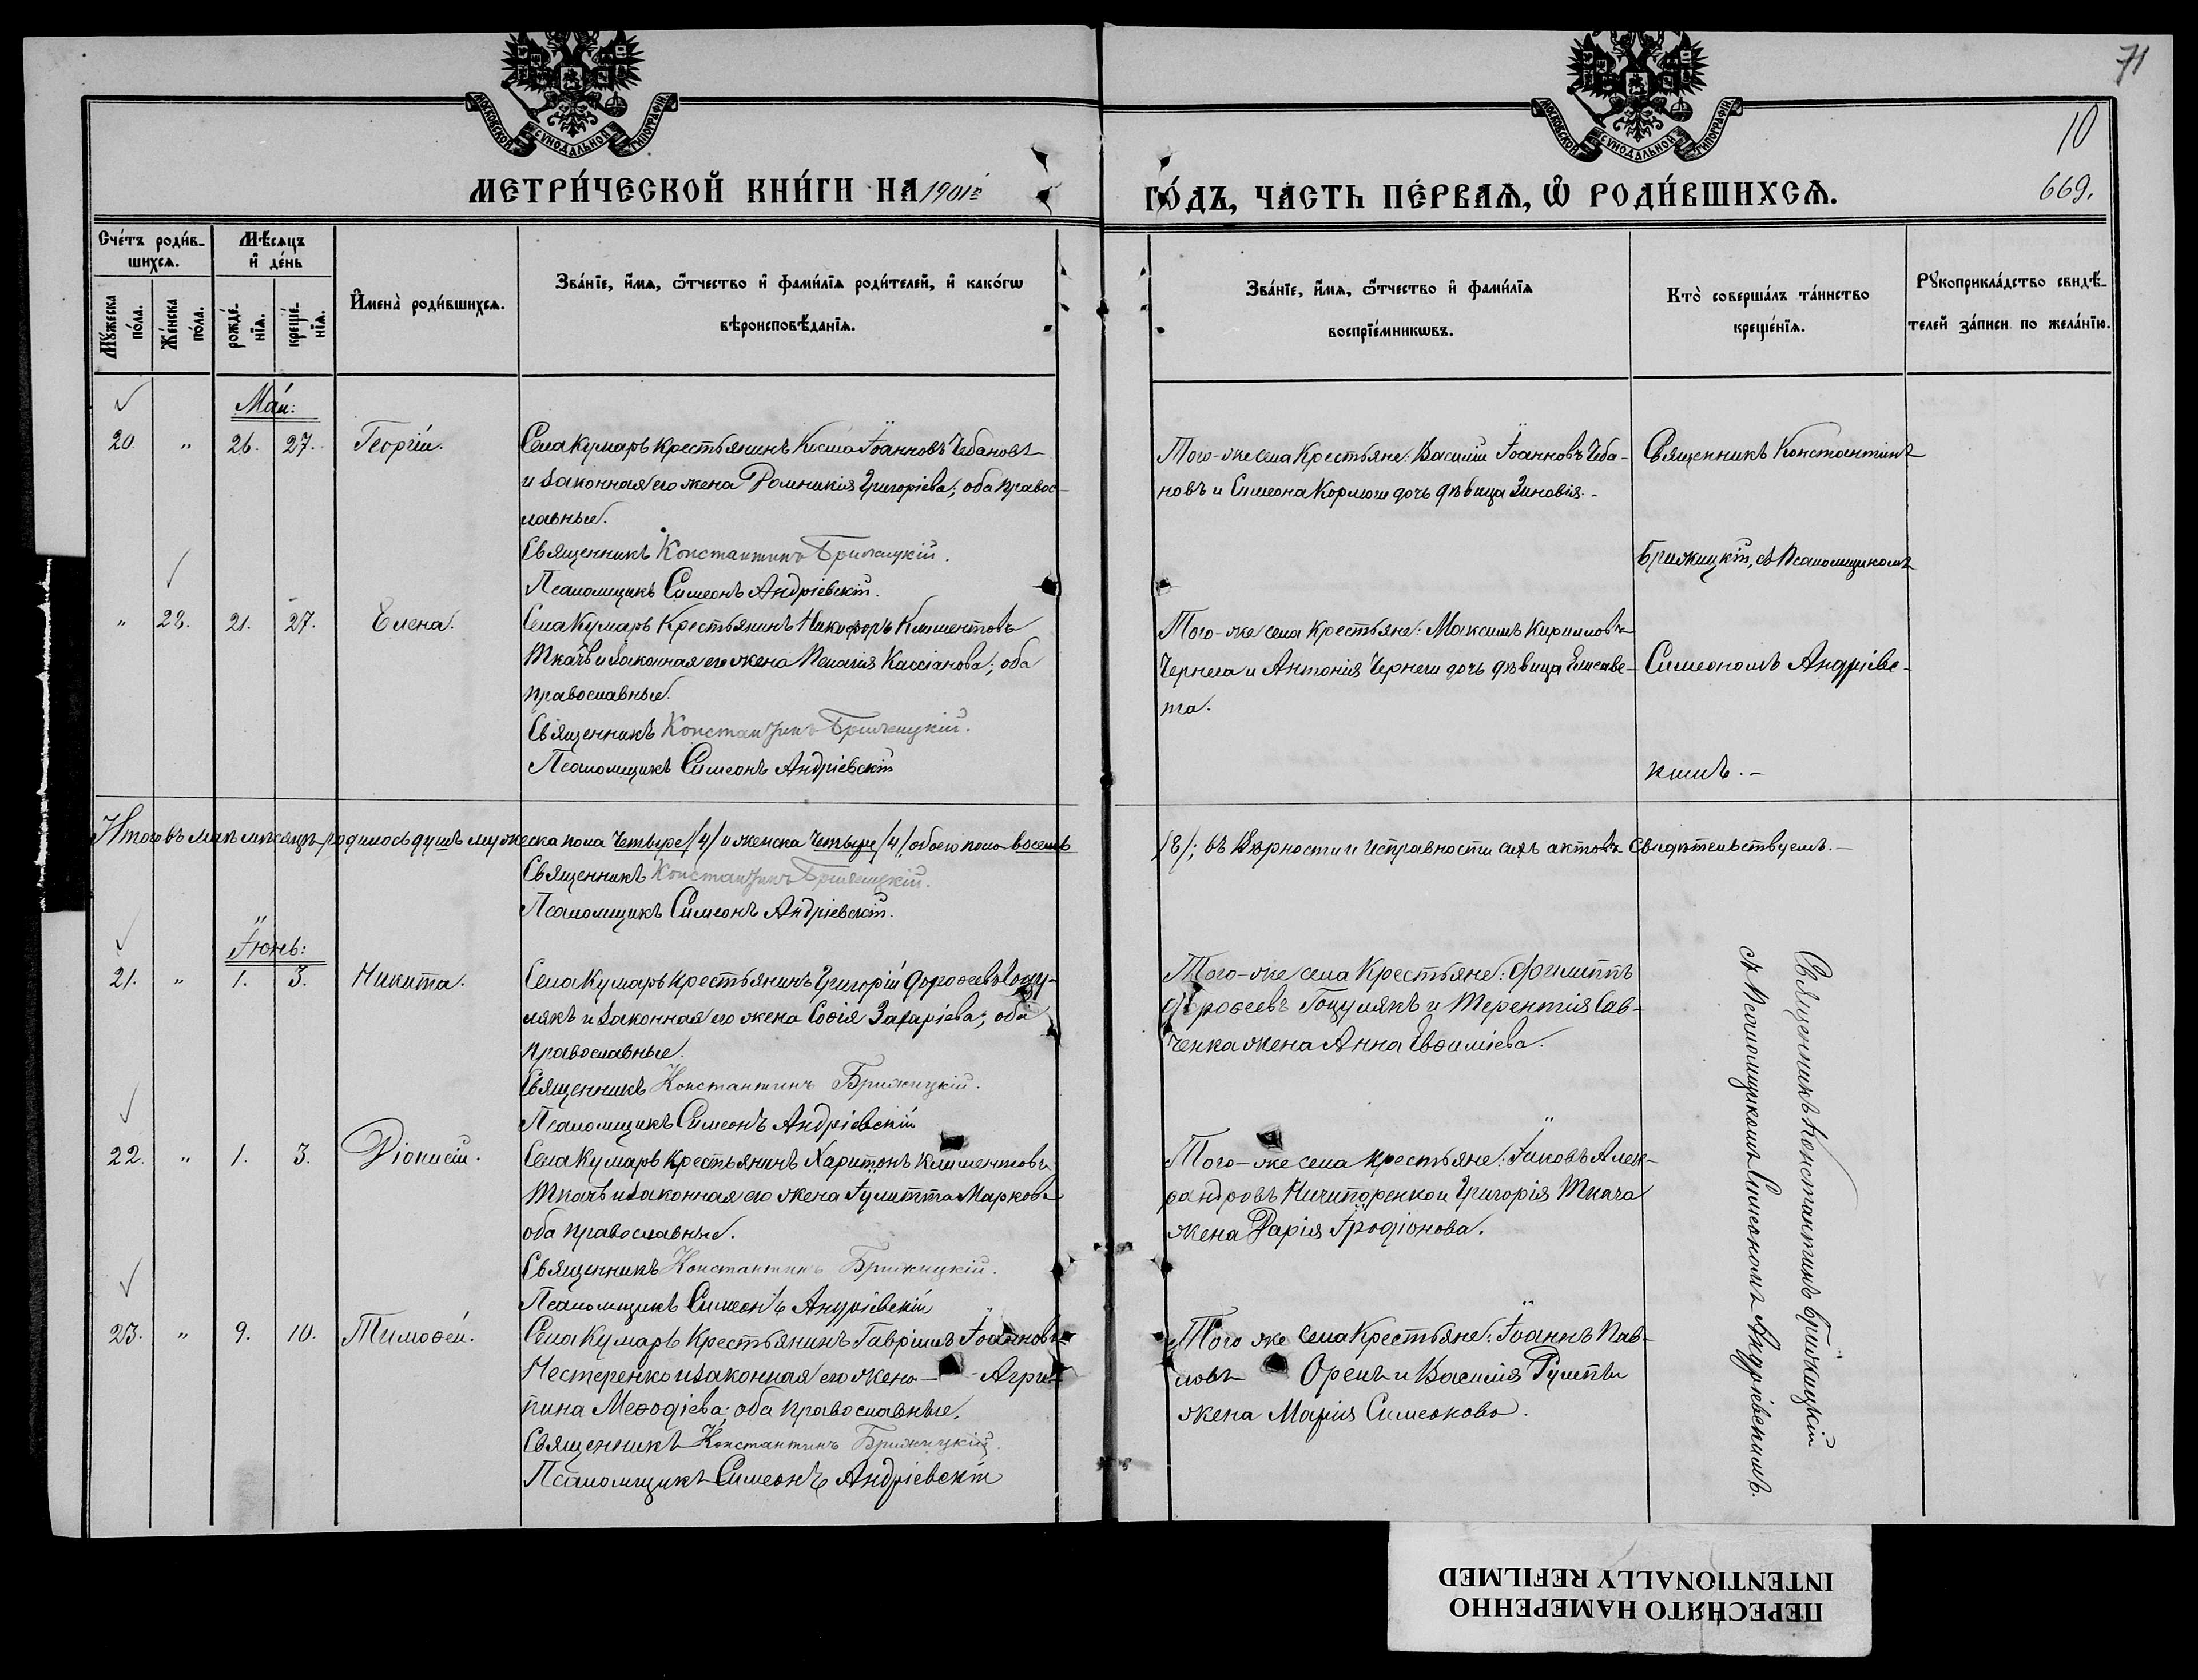 71
10
669.
МОСКОВСКОЙ СУНОДАЛЬНОЙ ТИПОГРАФІИ
МОСКОВСКОЙ СУНОДАЛЬНОЙ ТИПОГРАФІИ
МЕТРИ́ЧЕСКОЙ КНИ́ГИ НА 1901й
ГО́ДЪ, ЧАСТЬ ПЕ́РВАѦ, Ѡ РОДИ́ВШИХСѦ.
Сче́тъ роди́в-
шихсѧ.
Мꙋ́жеска по́ла.
Же́нска по́ла.
Мѣ́сѧцъ
и҆ де́нь
рожде́-
нїѧ.
креще́-
нїѧ.
И҆мена̀ роди́вшихсѧ.
Зва́нїе, и҆́мѧ, ѻ҆́тчество и҆ фами́лїѧ роди́телей, и҆ како́гѡ
вѣроисповѣ́данїѧ.
Зва́нїе, и҆́мѧ, ѻ҆́тчество и҆ фами́лїѧ
воспрїе́мникѡвъ.
Кто̀ соверша́лъ та́инство
креще́нїѧ.
Рꙋкоприкла́дство свидѣ́-
телей за́писи по жела́нїю.
Май:
20. " 26. 27. Георгій.
Села Кумаръ крестьянинъ Косма Іоанновъ Чебановъ
и законная его жена Домникія Григоріева; оба правос-
лавные.
Священникъ Константинъ Брижицкій.
Псаломщикъ Симеонъ Андріевскій.
Того-же села Крестьяне: Василій Іоанновъ Чеба-
новъ и Симеона дочь дѣвица Зиновія.-
Священникъ Константинъ
Брижицкій, съ Псаломщикомъ
" 28. 21. 27. Елена.
Села Кумаръ Крестьянинъ Никифоръ Климентовъ
Ткачъ и законная его жена Пелагія Кассіанова; оба
православные.
Священникъ Константинъ Брижицкій.
Псаломщикъ Симеонъ Андріевскій
Того-же села Крестьяне: Максимъ Кирилловъ
Чернега и Антонія Чернеги дочь дѣвица Елисаве-
та.
Симеономъ Андріевс-
кимъ.-
Итого въ маѣ мѣсяцѣ родилось душъ мужеска пола четыре /4/ и женска четыре /4/ обоего пола восемь
/8/; въ вѣрности и исправности сихъ актовъ свидѣтельствуемъ.-
Священникъ Константинъ Брижицкій.
Псаломщикъ Симеонъ Андріевскій.
Іюнь:
21. " 1. 3. Никита.
Села Кумаръ крестьянинъ Григорій Дороѳеевъ Гоцу-
лякъ и законная его жена Софія Захаріева; оба
православные.
Священникъ Константинъ Брижицкій.
Псаломщикъ Симеонъ Андріевскій
Того-же села Крестьяне: Филиппъ
Дороѳеевъ Гоцулякъ и Терентія Сав-
ченка жена Анна Евѳиміева.
22. " 1. 3. Діонисій.
Села Кумаръ Крестьянинъ Харитонъ Климентовъ
Ткачъ и законная его жена Іулитта Маркова
оба православные.
Священникъ Константинъ Брижицкій.
Псаломщикъ Симеонъ Андріевскій
Того-же села крестьяне: Іаковъ Алек-
сандровъ Ничипоренко и Григорія Ткача
жена Дарія Іродіонова.
23. " 9. 10. Тимоѳей.
Села Кумаръ Крестьянинъ Гавріилъ Іоанновъ
Нестеренко и законная его жена - Агрип-
пина Меѳодіева; оба православные.
Священникъ Константинъ Брижицкій.
Псаломщикъ Симеонъ Андріевскій
Того же села Крестьяне: Іоаннъ Пав-
ловъ Орелъ и Василія
жена Марія Симеонова.
Священникъ Константинъ Брижицкій
съ Псаломщикомъ Симеономъ Андріевскимъ.
ПЕРЕСНЯТО НАМЕРЕННО
INTENTIONALLY REFILMED